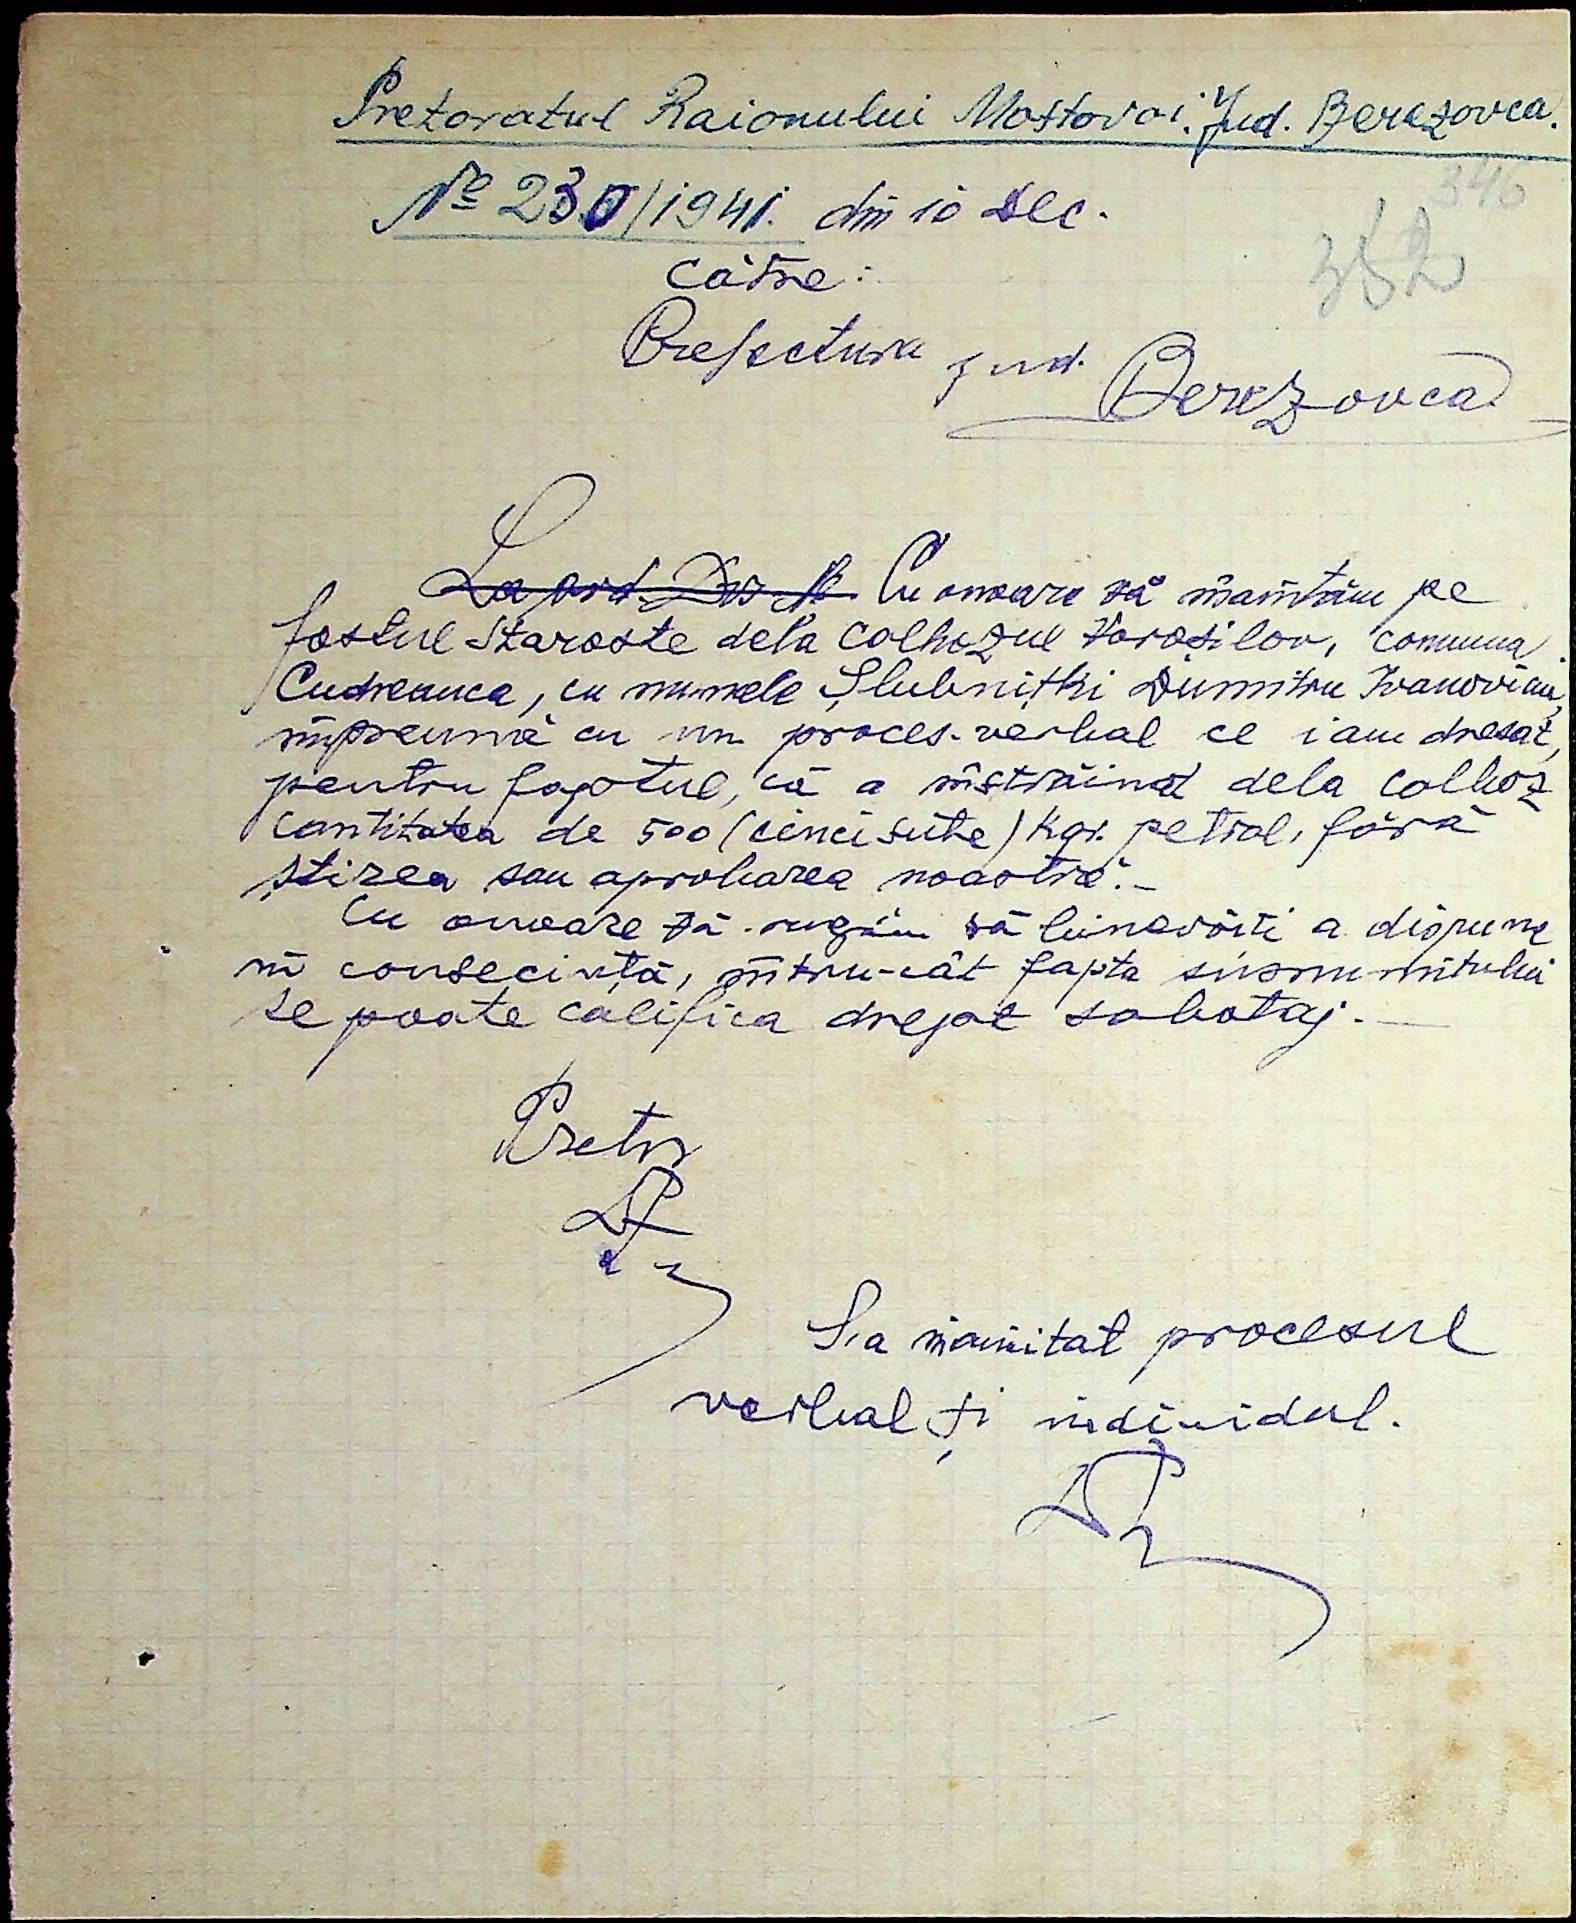 Pretoratul Raionului Mostovoi. Jud. Berezovca.
346
№ 230/1941. din 10 Dec.
352
Către:
Prefectura Jud. Berezovca
La ord. Dvs. № Cu onoare vă înaintăm pe
fostul Staroste dela Colhozul Voroșilov, comuna
Cudreanca, cu numele Șlubnițki Dumitru Ivanovici,
împreună cu un proces-verbal ce i am dresat,
pentru faptul, că a înstrăinat dela colhoz
cantitatea de 500 (cinci sute) kgr. petrol, fără
știrea sau aprobarea noastră.-
Cu onoare vă rugăm să binevoiți a dispune
în consecință, întru-cât fapta susnumitului
se poate califica drept sabotaj.-
Pretor
S.a înaintat procesul
verbal și individul.